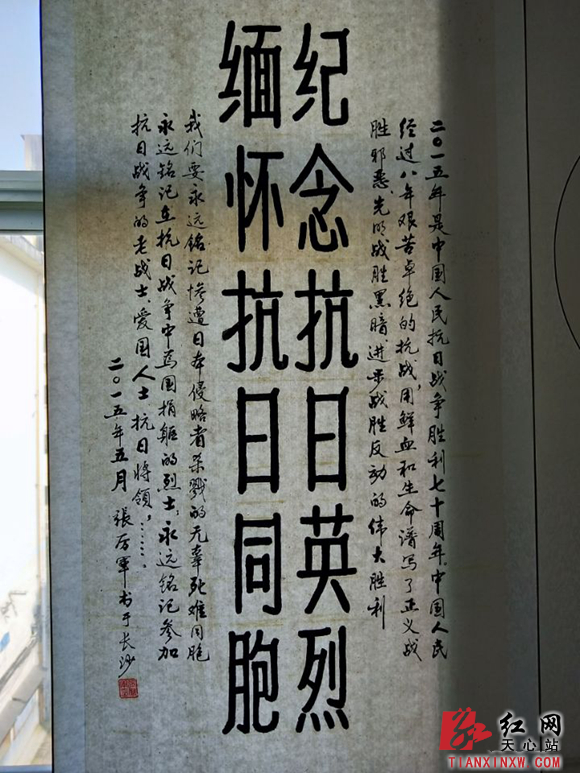 二〇一五年是中国人民抗日战争胜利七十周年,中国人民
经过八年艰苦卓绝的抗战,用鲜血和生命谱写了正义战
胜邪恶、光明战胜黑暗、进步战胜反动的伟大胜利
纪念抗日英烈
缅怀抗日同胞
我们要永远铭记惨遭日本侵略者杀戮的无辜死难同胞
永远铭记在抗日战争中为国捐躯的烈士;永远铭记参加
抗日战争的老战士、爱国人士、抗日将领,……。
二〇一五年五月 張厉軍书于长沙
红网
天心站
TIANXINXW.COM